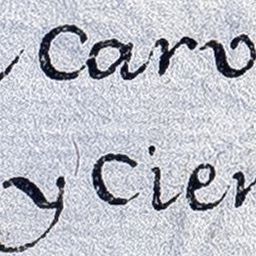 Carv
y Cien